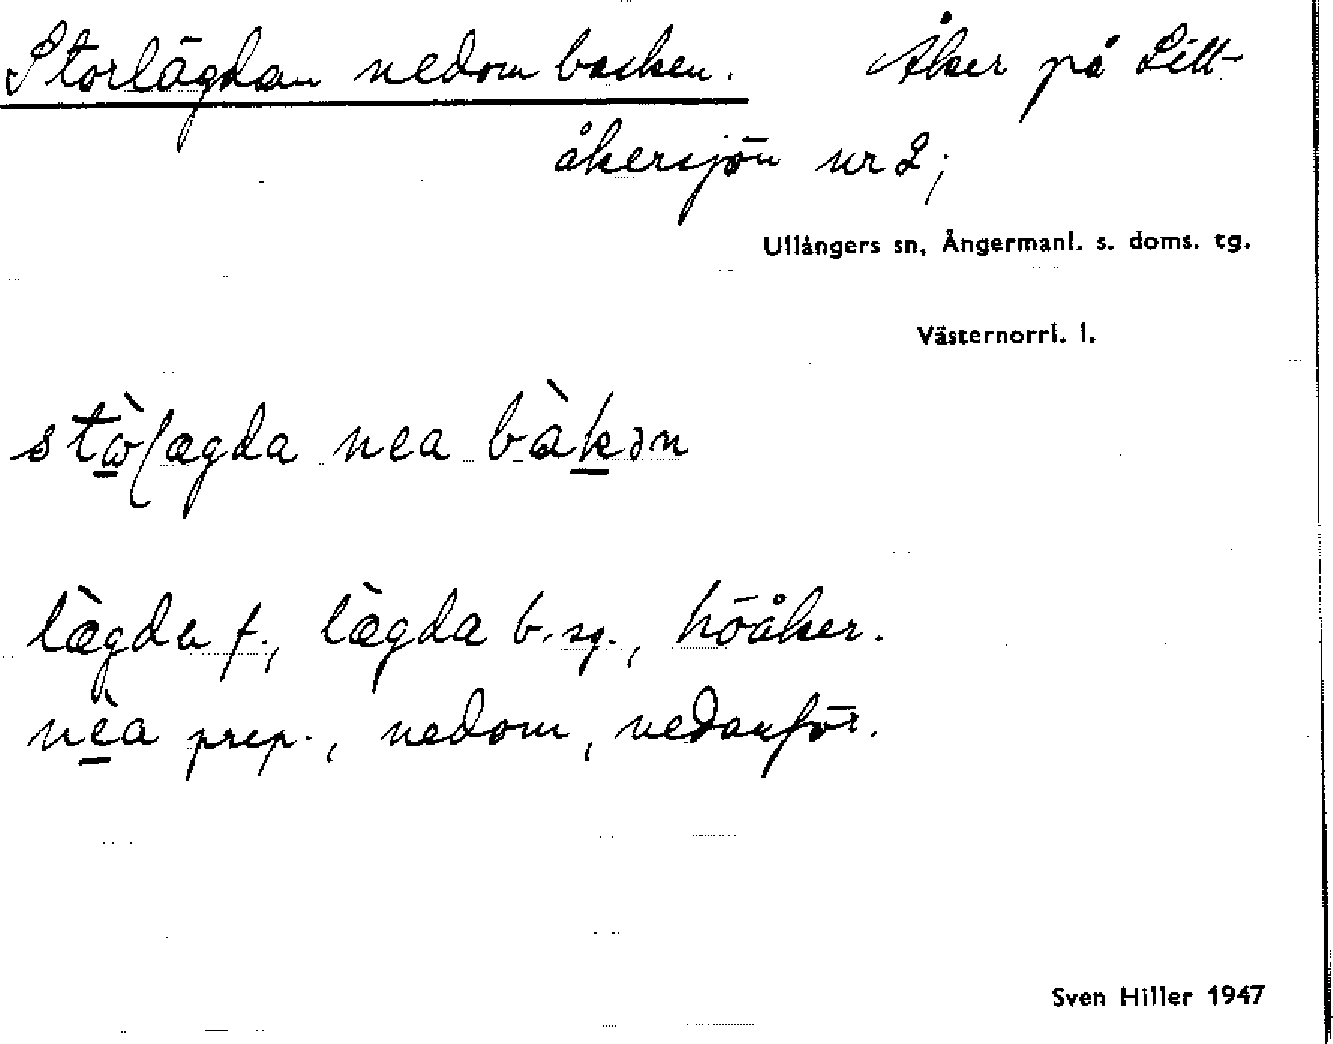 Storlägdan nedom backen. Åker på Litt-
åkersjön nr 2;
Ullångers sn, Ångermanl. s. doms. tg.
Västernorrl. l.
stɷ̀ɭægda nea bàkən
lægda f., lægda b. sg., höåker.
nèa prep., nedom, nedanför.
Sven Hiller 1947